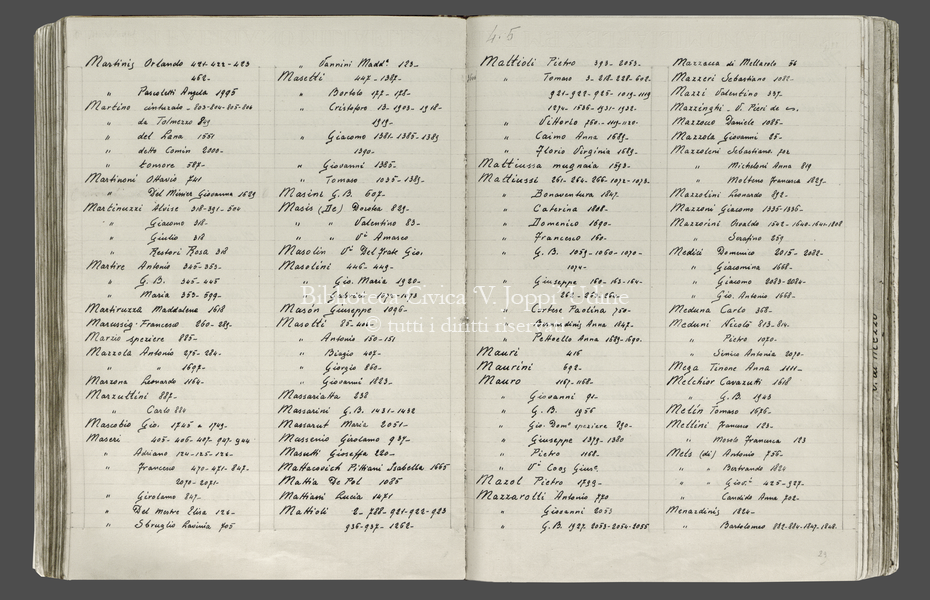 4.5
Martinis Orlando 421-422-423
462-
" Pascoletti Angela 1995
Martino cinturaio - 803-804-805-806
" da Tolmezzo 849
" del Lana 1551
" detto Comin 2000-
" tonsore 587-
Martinoni Ottavio 741
" Del Missier Giovanna 1629
Martinuzzi Alvise 318-391-504
" Giacomo 318-
" Giulio 318
" Restori Rosa 318
Martire Antonio 345-353-
" G.B. 345-445
" Maria 353-599-
Martiruzza Maddalena 1618
Marussig Francesco 260-289-
Marzio speziere 885-
Marzola Antonio 275-284-
" " 1697-
Marzona Leonardo 1164-
Marzuttini 887-
" Carlo 880
Mascobio Gio. 1745 a 1749-
Maseri 405-406-407-947-944
" Adriano 124-125-126-
" Francesco 470-471-847-
2070-2071-
" Girolamo 847-
" Del mestre Elisa 126-
" Sbruglio Lavinia 705
" Vannini Madd.a 123-
Masetti 447-1387-
" Bortolo 177-178-
" Cristoforo 13-1903-1918-
1919-
" Giacomo 1381-1385-1389
1390-
" Giovanni 1385-
" Tomaso 1035-1389-
Masini G.B. 607-
Masir (De) Dorotea 829-
" " Valentino 83-
" " V.a Amasco
Masolin V.a Del Frate Gio.
Masolini 446-449-
" Gio. Maria 1920-
Mason Giuseppe 1096-
Masotti 85-
" Antonio 150-151
" Biagio 407-
" Giorgio 860-
" Giovanni 1823-
Massariatta 238
Massarini G.B. 1431-1432
Massarut Maria 2051-
Mussenio Girolamo 937-
Masutti Gioseffe 220-
Mattacovich Pittiani Isabella 1665
Mattia De Pol 1085
Mattiassi Lucia 1471
Mattioli 2-788-921-922-923
936-937-1262-
Mattioli Pietro 393-2053-
" Tomaso 3-218-228-602-
921-922-925-1019-1119
1274-1536-1931-1932-
" Vittorio 750-1119-1120-
" Caimo Anna 1689-
" Florio Virginia 1689-
Mattiussa mugnaia 1593-
Mattiussi 261-264-266-1072-1073-
" Bonaventura 1847-
" Caterina 1808-
" Domenico 1690-
" Francesco 160-
" G.B. 1059-1060-1070-
1074-
" Giuseppe 160-163-164-
" Cortese Paolina 750-
" Bernardinis Anna 1847-
" Pettoello Anna 1689-1690-
Mauri 416
Maurini 692-
Mauro 1167-1168-
" Giovanni 91-
" G.B. 1956
" Gio. Dom.o speziere 290-
" Giuseppe 1379-1380
" Pietro 1168-
" V.a Coos Gius.a
Mazol Pietro 1799-
Mazzarolli Antonio 770
" Giovanni 2053
" G.B. 1927-2053-2054-2055
Mazzacca di Mellarolo 56
Mazzeri Sebastiano 1082-
Mazzi Valentino 397-
Mazzinghi - V. Pieri de
Mazzocco Daniele 1085-
Mazzola Giovanni 25-
Mazzoleni Sebastiano 702
" Micheloni Anna 819
" Molteno Francesca 1829-
Mazzolini Leonardo 892-
Mazzoni Giacomo 1335-1336-
Mazzorini Osvaldo 1542-1640-1641-1808
" Serafino 259
Medici Domenico 2015-2082-
" Giacomina 1668-
" Giacomo 2083-2084-
" Gio. Antonio 1668-
Meduna Carlo 368-
Meduni Nicolò 813-814-
" Pietro 1070-
" Simico Antonia 2070-
Mega Tinone Anna 1111-
Melchior Cavazuti 1618
" G.B. 1943
Melin Tomaso 1676-
Mellini Francesco 123-
" Moselo Francesca 123
Mels (di) Antonio 756-
" " Bertrando 1820
" " Giov.i 425-927-
" Candido Anna 702-
Menardinis 1824-
" Bartolomeo 882-884-1847-1848-
29
Biblioteca Civica 'V. Joppi' Udine
© tutti i diritti riservati